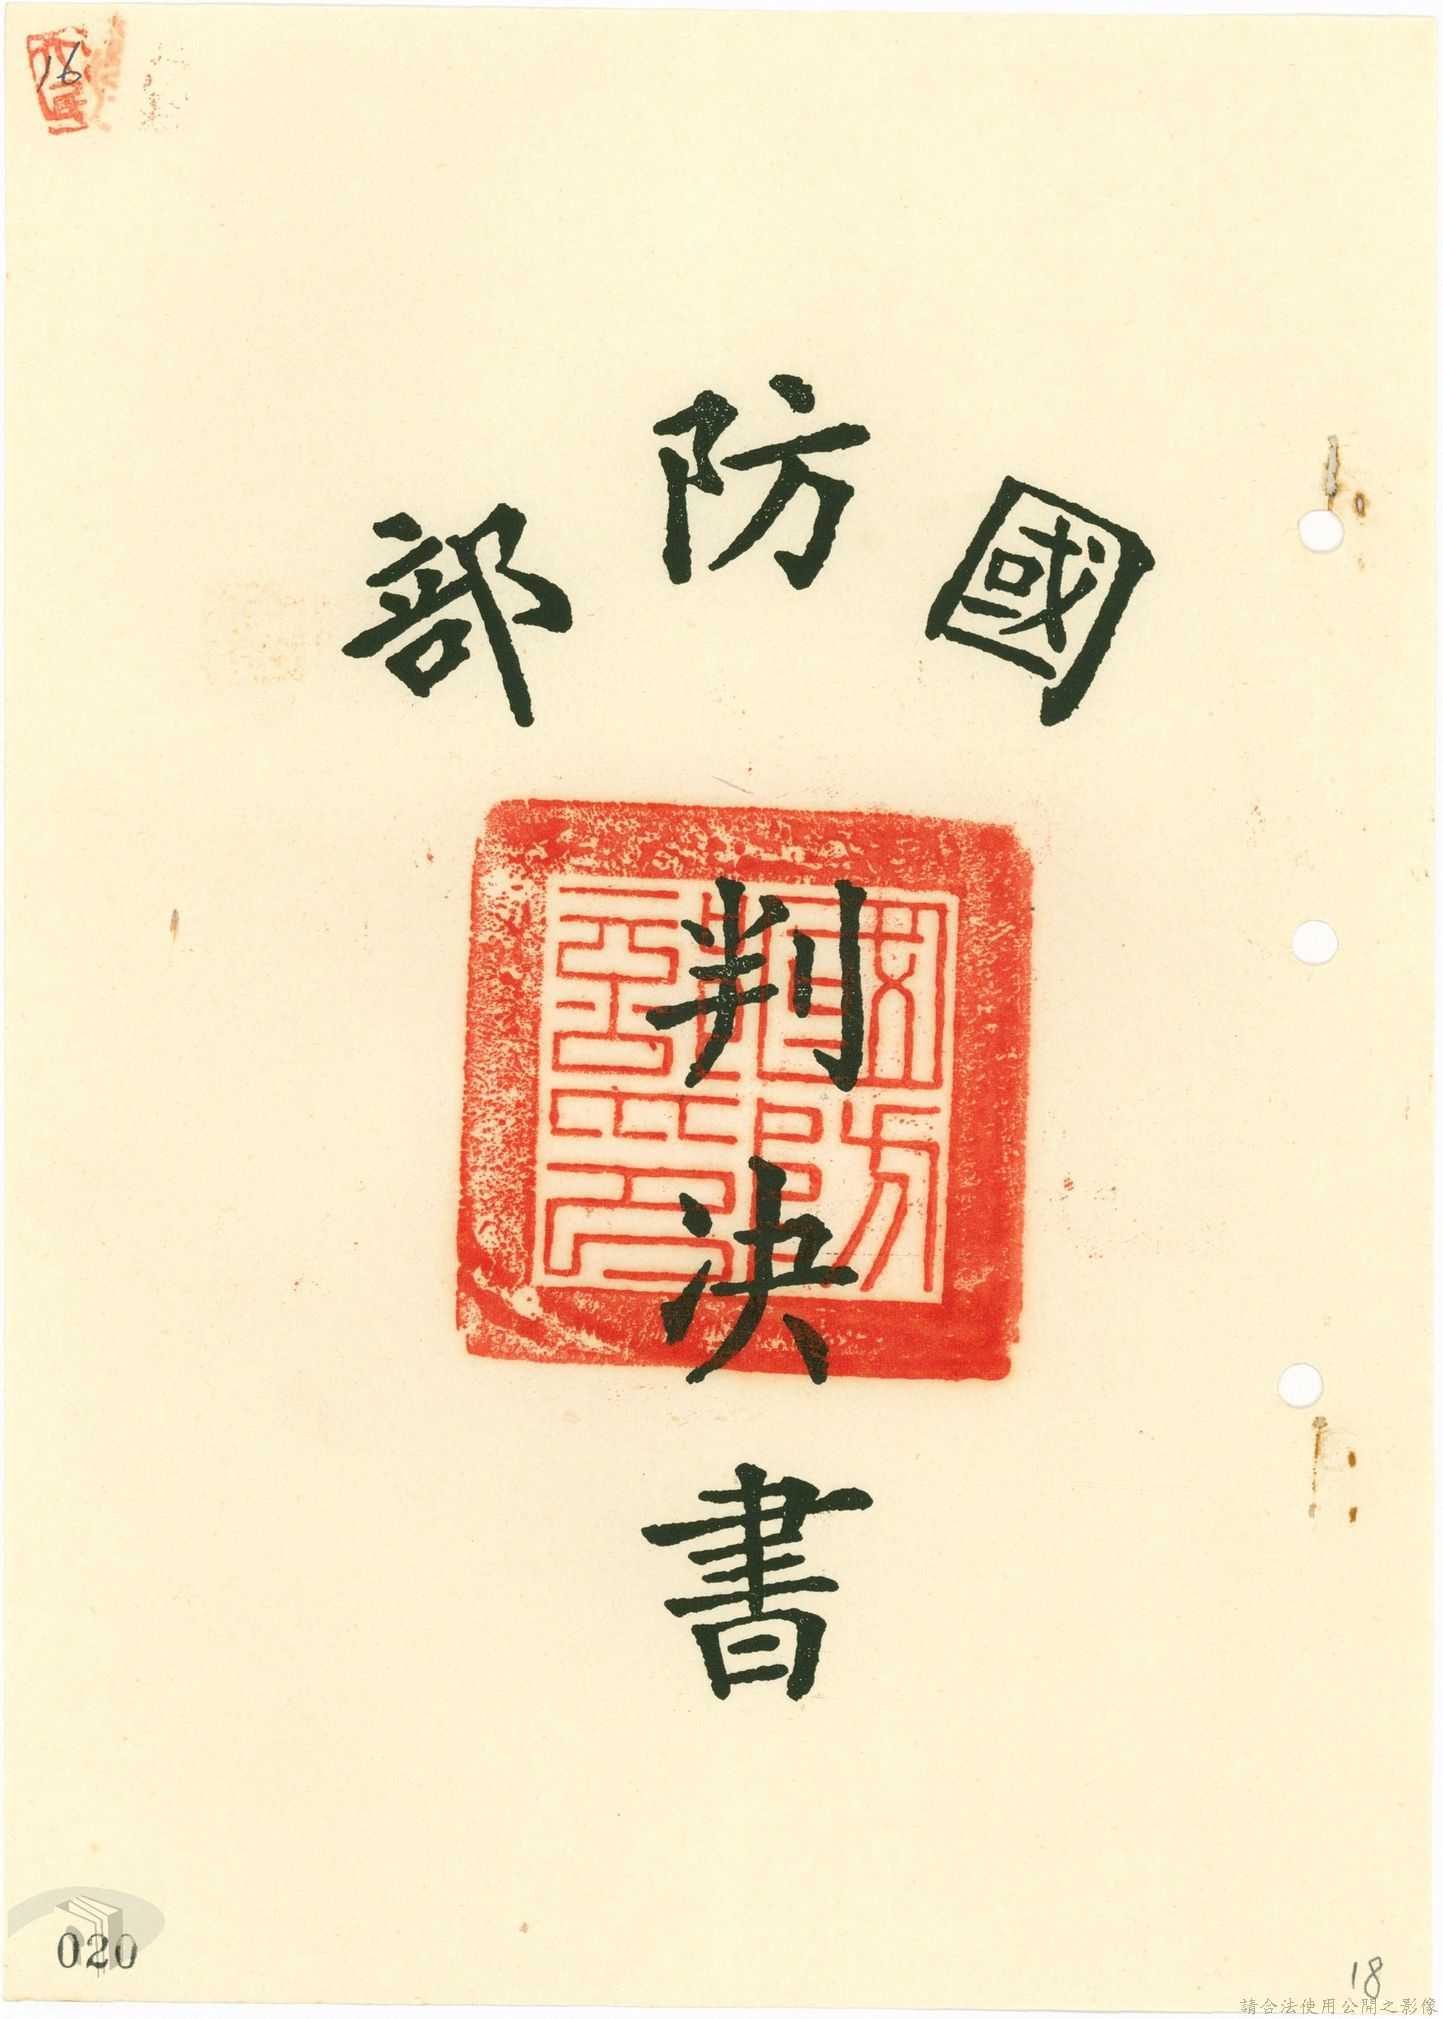 16
國防部
判決書
020
18
請合法使用公開之影像